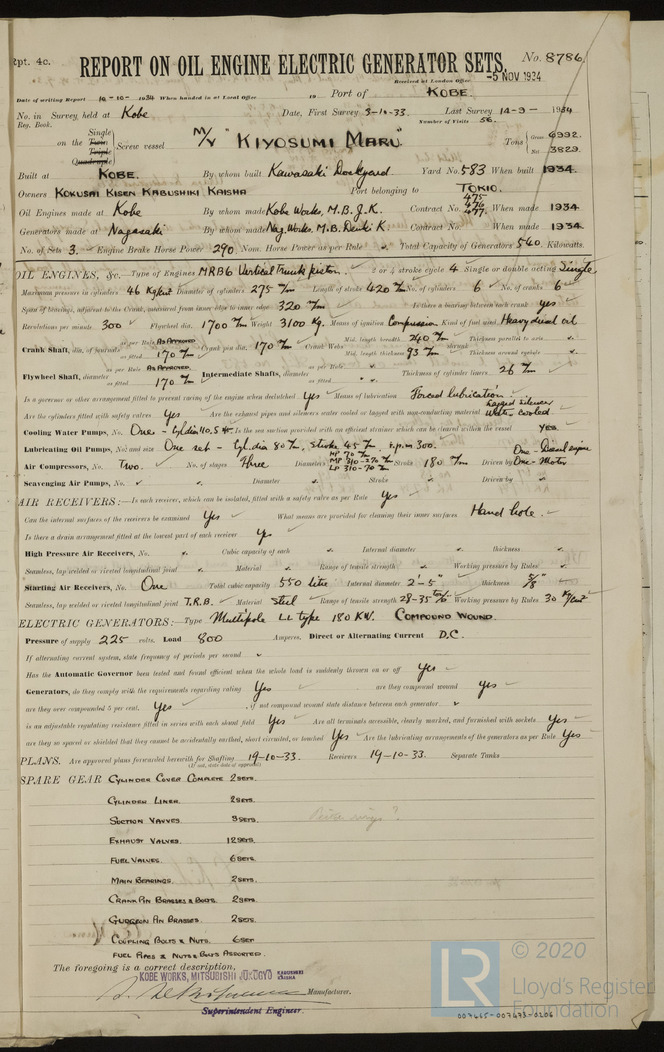 Rpt. 4c.
REPORT ON OIL ENGINE ELECTRIC GENERATOR SETS. No. 8786
Received at London Office -5 NOV 1934
Date of writing Report 10-10-1934 When handed in at Local Office 19 Port of KOBE.
No. in Survey held at Kobe Date, First Survey 3-10-33. Last Survey 14-9-1934
Reg. Book. Number of Visits 56.
on the Single Twin Triple Quadruple Screw vessel M/V "KIYOSUMI MARU" Tons Gross 6992. Net 3829.
Built at KOBE. By whom built Kawasaki Dockyard. Yard No. 583 When built 1934.
Owners KOKUSAI KISEN KABUSHIKI KAISHA Port belonging to TOKIO.
Oil Engines made at Kobe By whom made Kobe Works, M.B.J.K. Contract No. 475 476 477 When made 1934
Generators made at Nagasaki By whom made Nag. Works, M.B. Denki K. Contract No. When made 1934.
No. of Sets 3. Engine Brake Horse Power 290 Nom. Horse Power as per Rule Total Capacity of Generators 540 Kilowatts.
OIL ENGINES, &c.—Type of Engines MRB6 Vertical trunk piston. 2 or 4 stroke cycle 4 Single or double acting Single
Maximum pressure in cylinders 46 Kg/cm² Diameter of cylinders 275 m/m Length of stroke 420 m/m No. of cylinders 6 No. of cranks 6
Span of bearings, adjacent to the Crank, measured from inner edge to inner edge 320 m/m Is there a bearing between each crank yes
Revolutions per minute 300 Flywheel dia. 1700 m/m Weight 3100 Kg. Means of ignition Compression Kind of fuel used Heavy diesel oil
Crank Shaft, dia. of journals as per Rule AS APPROVED as fitted 170 m/m Crank pin dia. 170 m/m Crank Webs Mid. length breadth 240 m/m Mid. length thickness 93 m/m shrunk Thickness parallel to axis Thickness around eyehole
Flywheel Shaft, diameter as per Rule AS APPROVED as fitted 170 m/m Intermediate Shafts, diameter as per Rule as fitted Thickness of cylinder liners 26 m/m
Is a governor or other arrangement fitted to prevent racing of the engine when declutched Yes Means of lubrication Forced lubrication.
Are the cylinders fitted with safety valves Yes Are the exhaust pipes and silencers water cooled or lagged with non-conducting material Lagged silencer Water cooled
Cooling Water Pumps, No. One - Is the sea suction provided with an efficient strainer which can be cleared within the vessel Yes
Lubricating Oil Pumps, No. and size One set - Cyl. dia 80 m/m, Stroke 45 m/m r.p.m 300.
Air Compressors, No. Two. No. of stages Three Diameters HP 70 m/m LP 310-70 m/m Stroke 180 m/m Driven by One - Diesel engine One - Motor
Scavenging Air Pumps, No. Diameter Stroke Driven by
AIR RECEIVERS:—Is each receiver, which can be isolated, fitted with a safety valve as per Rule Yes
Can the internal surfaces of the receivers be examined Yes What means are provided for cleaning their inner surfaces Hand hole.
Is there a drain arrangement fitted at the lowest part of each receiver Yes
High Pressure Air Receivers, No. Cubic capacity of each Internal diameter thickness
Seamless, lap welded or riveted longitudinal joint Material Range of tensile strength Working pressure by Rules
Starting Air Receivers, No. One Total cubic capacity 550 litre Internal diameter 2'-5" thickness 5/8"
Seamless, lap welded or riveted longitudinal joint T.R.B. Material Steel Range of tensile strength 28-35 Working pressure by Rules 30 Kg/cm²
ELECTRIC GENERATORS:—Type Multipole LL type 180 KW. COMPOUND WOUND.
Pressure of supply 225 volts. Load 800 Amperes. Direct or Alternating Current D.C.
If alternating current system, state frequency of periods per second
Has the Automatic Governor been tested and found efficient when the whole load is suddenly thrown on or off Yes
Generators, do they comply with the requirements regarding rating Yes are they compound wound yes
are they over compounded 5 per cent. Yes, if not compound wound state distance between each generator
is an adjustable regulating resistance fitted in series with each shunt field Yes Are all terminals accessible, clearly marked, and furnished with sockets yes
are they so spaced or shielded that they cannot be accidentally earthed, short circuited, or touched Yes Are the lubricating arrangements of the generators as per Rule Yes
PLANS. Are approved plans forwarded herewith for Shafting 19-10-33. Receivers 19-10-33. Separate Tanks
(If not, state date of approval)
SPARE GEAR CYLINDER COVER COMPLETE 2 SETS.
CYLINDER LINER. 2 SETS.
SUCTION VAVVES. 3 SETS.
EXHAUST VALVES. 12 SETS.
FUEL VALVES. 6 SETS.
MAIN BEARINGS. 2 SETS.
CRANK PIN BRASSES & BOLTS. 2 SETS.
GUDGEON PIN BRASSES. 2 SETS.
COUPLING BOLTS & NUTS. 6 SET
FUEL PIPES & NUTS & BOLTS ASSORTED.
The foregoing is a correct description,
KOBE WORKS, MITSUBISHI JUKOGYO KABUSHIKI KAISHA
Manufacturer.
Superintendent Engineer.
LR © 2020
Lloyd's Register
Foundation
007465-007473-0206